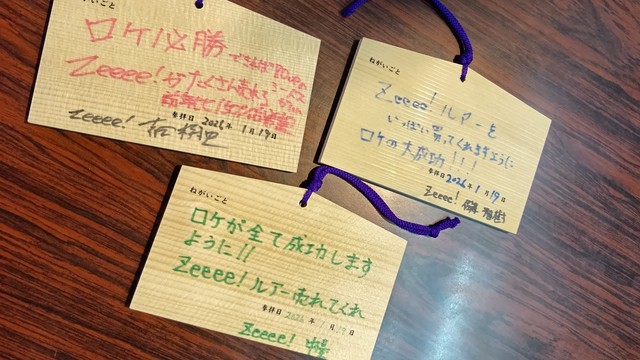 ねがいごと
ロケ必勝
Zeeee!
参拝日 2026年 1月19日
Zeeee!
ねがいごと
Zeeee! ルアーを
いっぱい買ってくれますように
ロケの大成功!!!
参拝日 2026年 1月19日
Zeeee!
ねがいごと
ロケが全て成功します
ように!!
Zeeee! ルアー売れてくれ
参拝日 2026年 1月19日
Zeeee!